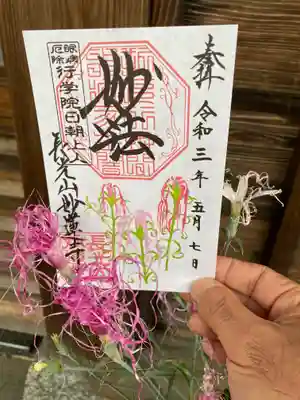 奉拝
令和三年五月七日
妙法
眼病
厄除
行学院日朝上人
長光山妙蓮上寺